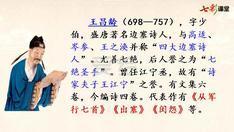 七彩课堂
王昌龄（698—757），字少
伯，盛唐著名边塞诗人，与高适、
岑参、王之涣并称“四大边塞诗
人”。尤善七绝，后人誉之为“七
绝圣手”。曾任江宁丞，故有“诗
家夫子王江宁”之誉。有文集六
卷，今编诗四卷。代表作有《从军
行七首》《出塞》《闺怨》等。